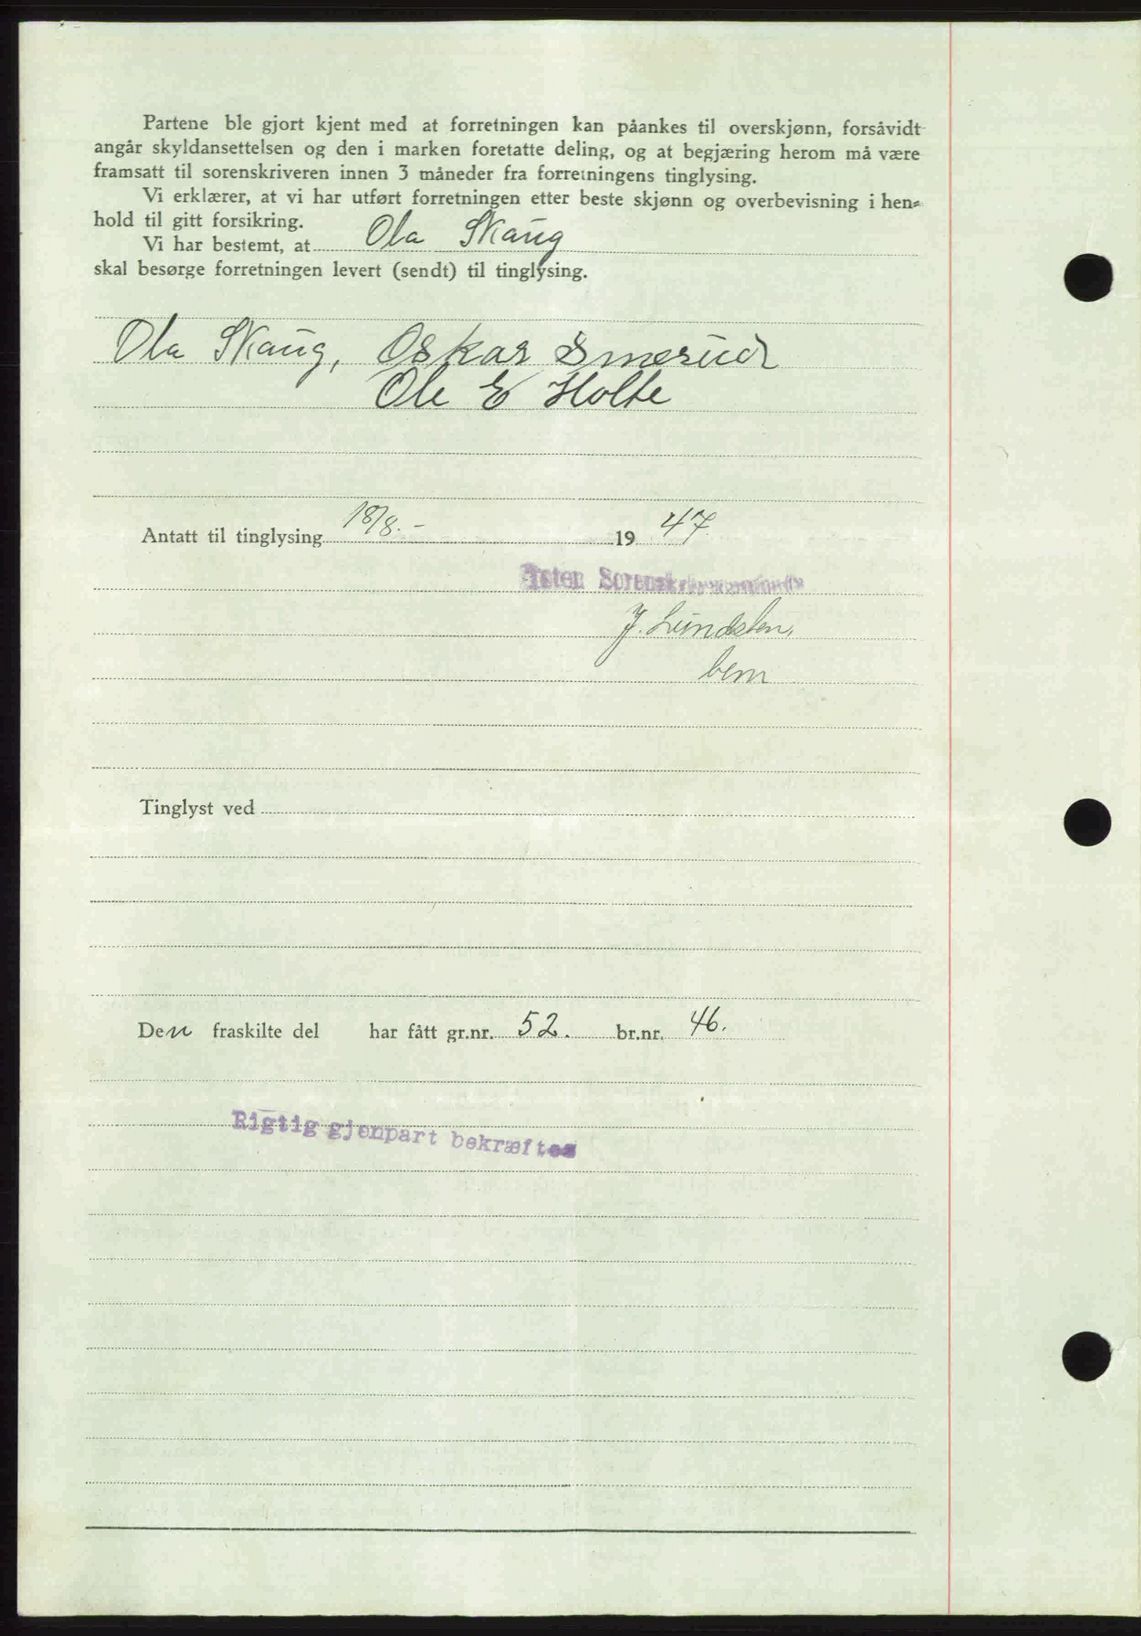 Partene ble gjort kjent med at forretningen kan påankes til overskjønn, forsåvidt
angår skyldansettelsen og den i marken foretatte deling, og at begjæring herom må være
framsatt til sorenskriveren innen 3 måneder fra forretningens tinglysing.
Vi erklærer, at vi har utført forretningen etter beste skjønn og overbevisning i hen-
hold til gitt forsikring.
Vi har bestemt, at Ola Skaug
skal besørge forretningen levert (sendt) til tinglysing.
Ola Skaug, Oskar Smerud
Ole E Holte
Antatt til tinglysing 18/8.- 1947
Toten Sorenskriverembede
J. Lundsten,
bem
Tinglyst ved
Den fraskilte del har fått gr.nr. 52. br.nr. 46.
Rigtig gjenpart bekræftes